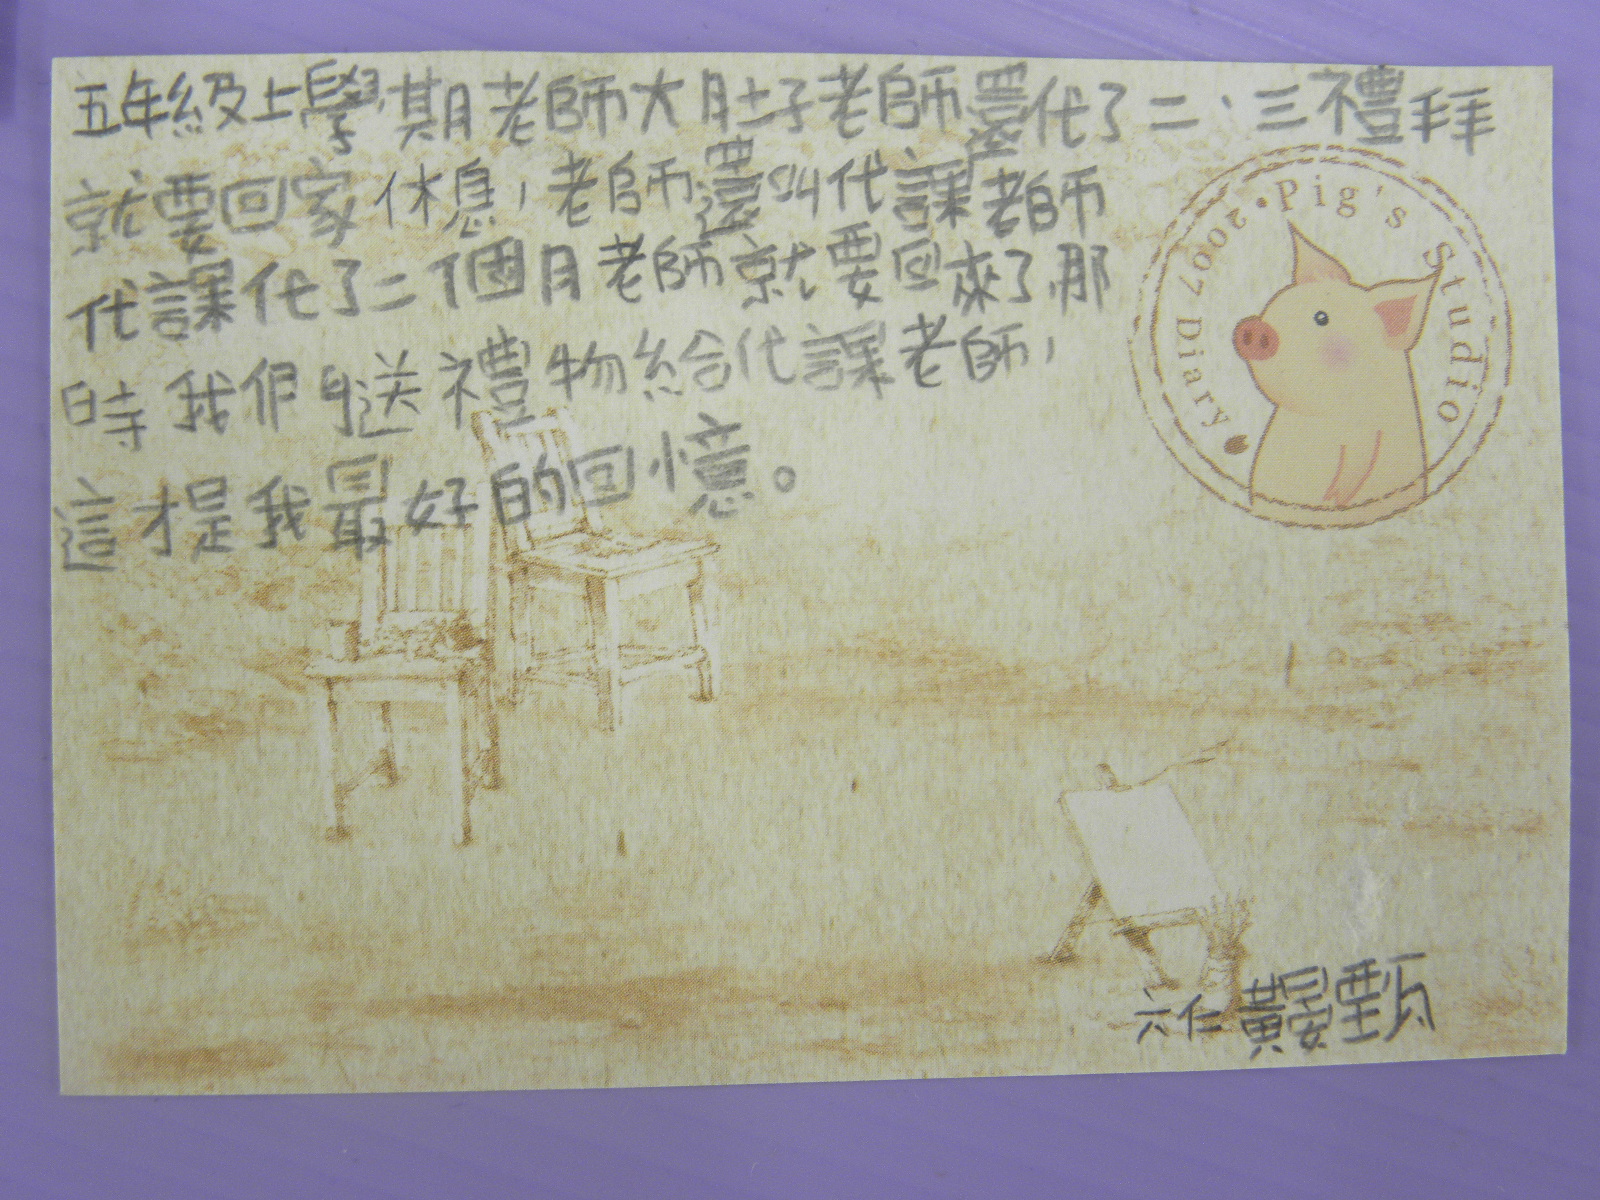 五年級上學期老師大肚子老師還代了二、三禮拜
就要回家休息,老師還叫代課老師
代課代了二個月老師就要回來了,那
時我們送禮物給代課老師,
這才是我最好的回憶。
2007 • Pig's Studio
Diary •
六仁 黃晏甄